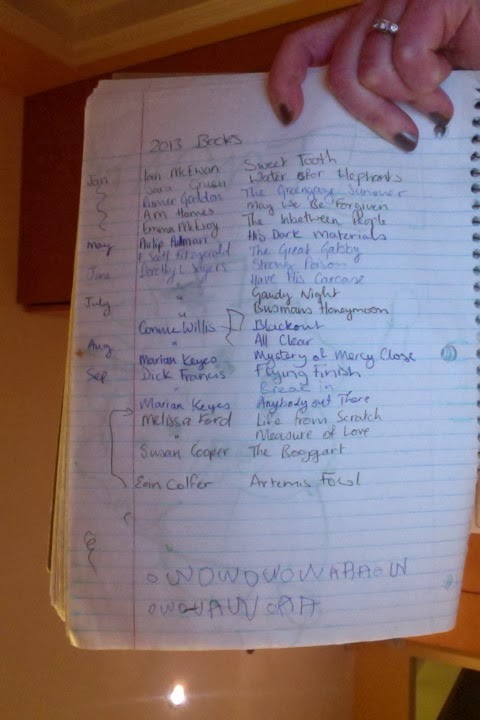 2013 Books
Jan Ian McEwan Sweet Tooth
Sara Gruen Water for Elephants
Rumer Godden The Greengage Summer
Am Homes May We Be Forgiven
Emma McEvoy The Inbetween People
May Philip Pulman His Dark Materials
F. Scott Fitzgerald The Great Gatsby
June Dorothy L Sayers Strong Poison
" Have His Carcase
July " Gaudy Night
" Busmans Honeymoon
Connie Willis Blackout
Aug " All Clear
Marian Keyes Mystery of Mercy Close
Sep Dick Francis Flying Finish
" Break in
Marian Keyes Anybody out There
Melissa Ford Life from Scratch
" Measure of Love
Susan Cooper The Boggart
Eoin Colfer Artemis Fowl